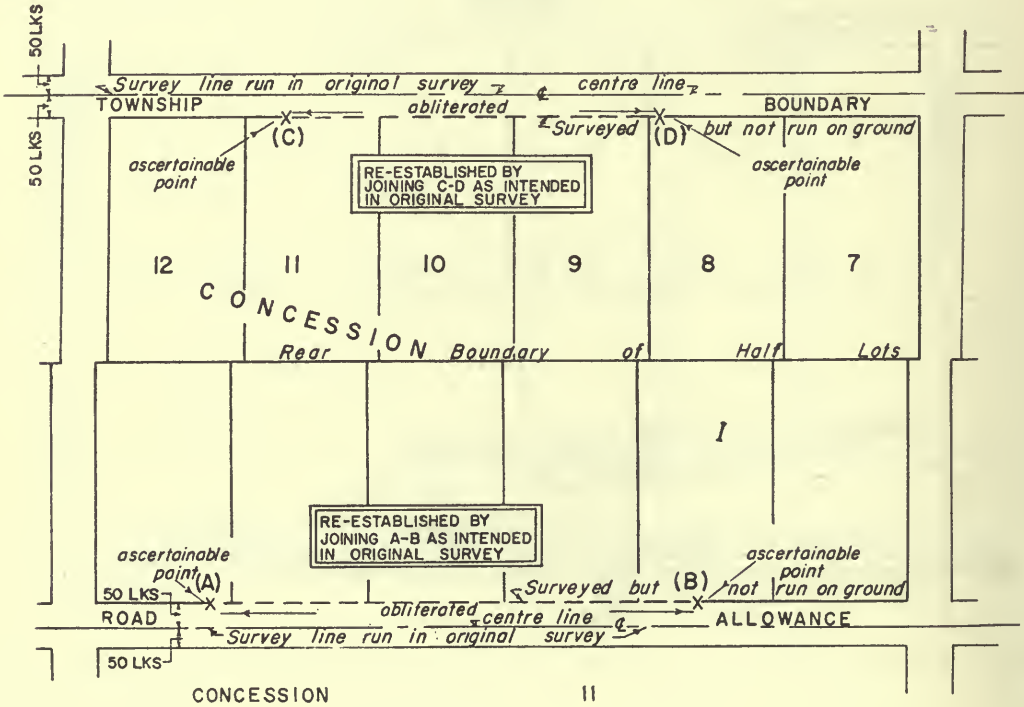 50 LKS
50 LKS
Survey line run in original survey ℄ centre line
TOWNSHIP abliterated BOUNDARY
(C) Surveyed (D) but not run on ground
ascertainable point
ascertainable point
RE-ESTABLISHED BY
JOINING C-D AS INTENDED
IN ORIGINAL SURVEY
12 11 10 9 8 7
CONCESSION
Rear Boundary of Half Lots
I
RE-ESTABLISHED BY
JOINING A-B AS INTENDED
IN ORIGINAL SURVEY
ascertainable
point (A)
ascertainable
point
Surveyed but (B) not run on ground
50 LKS
ROAD obliterated centre line ℄ ALLOWANCE
Survey line run in original survey
50 LKS
CONCESSION 11